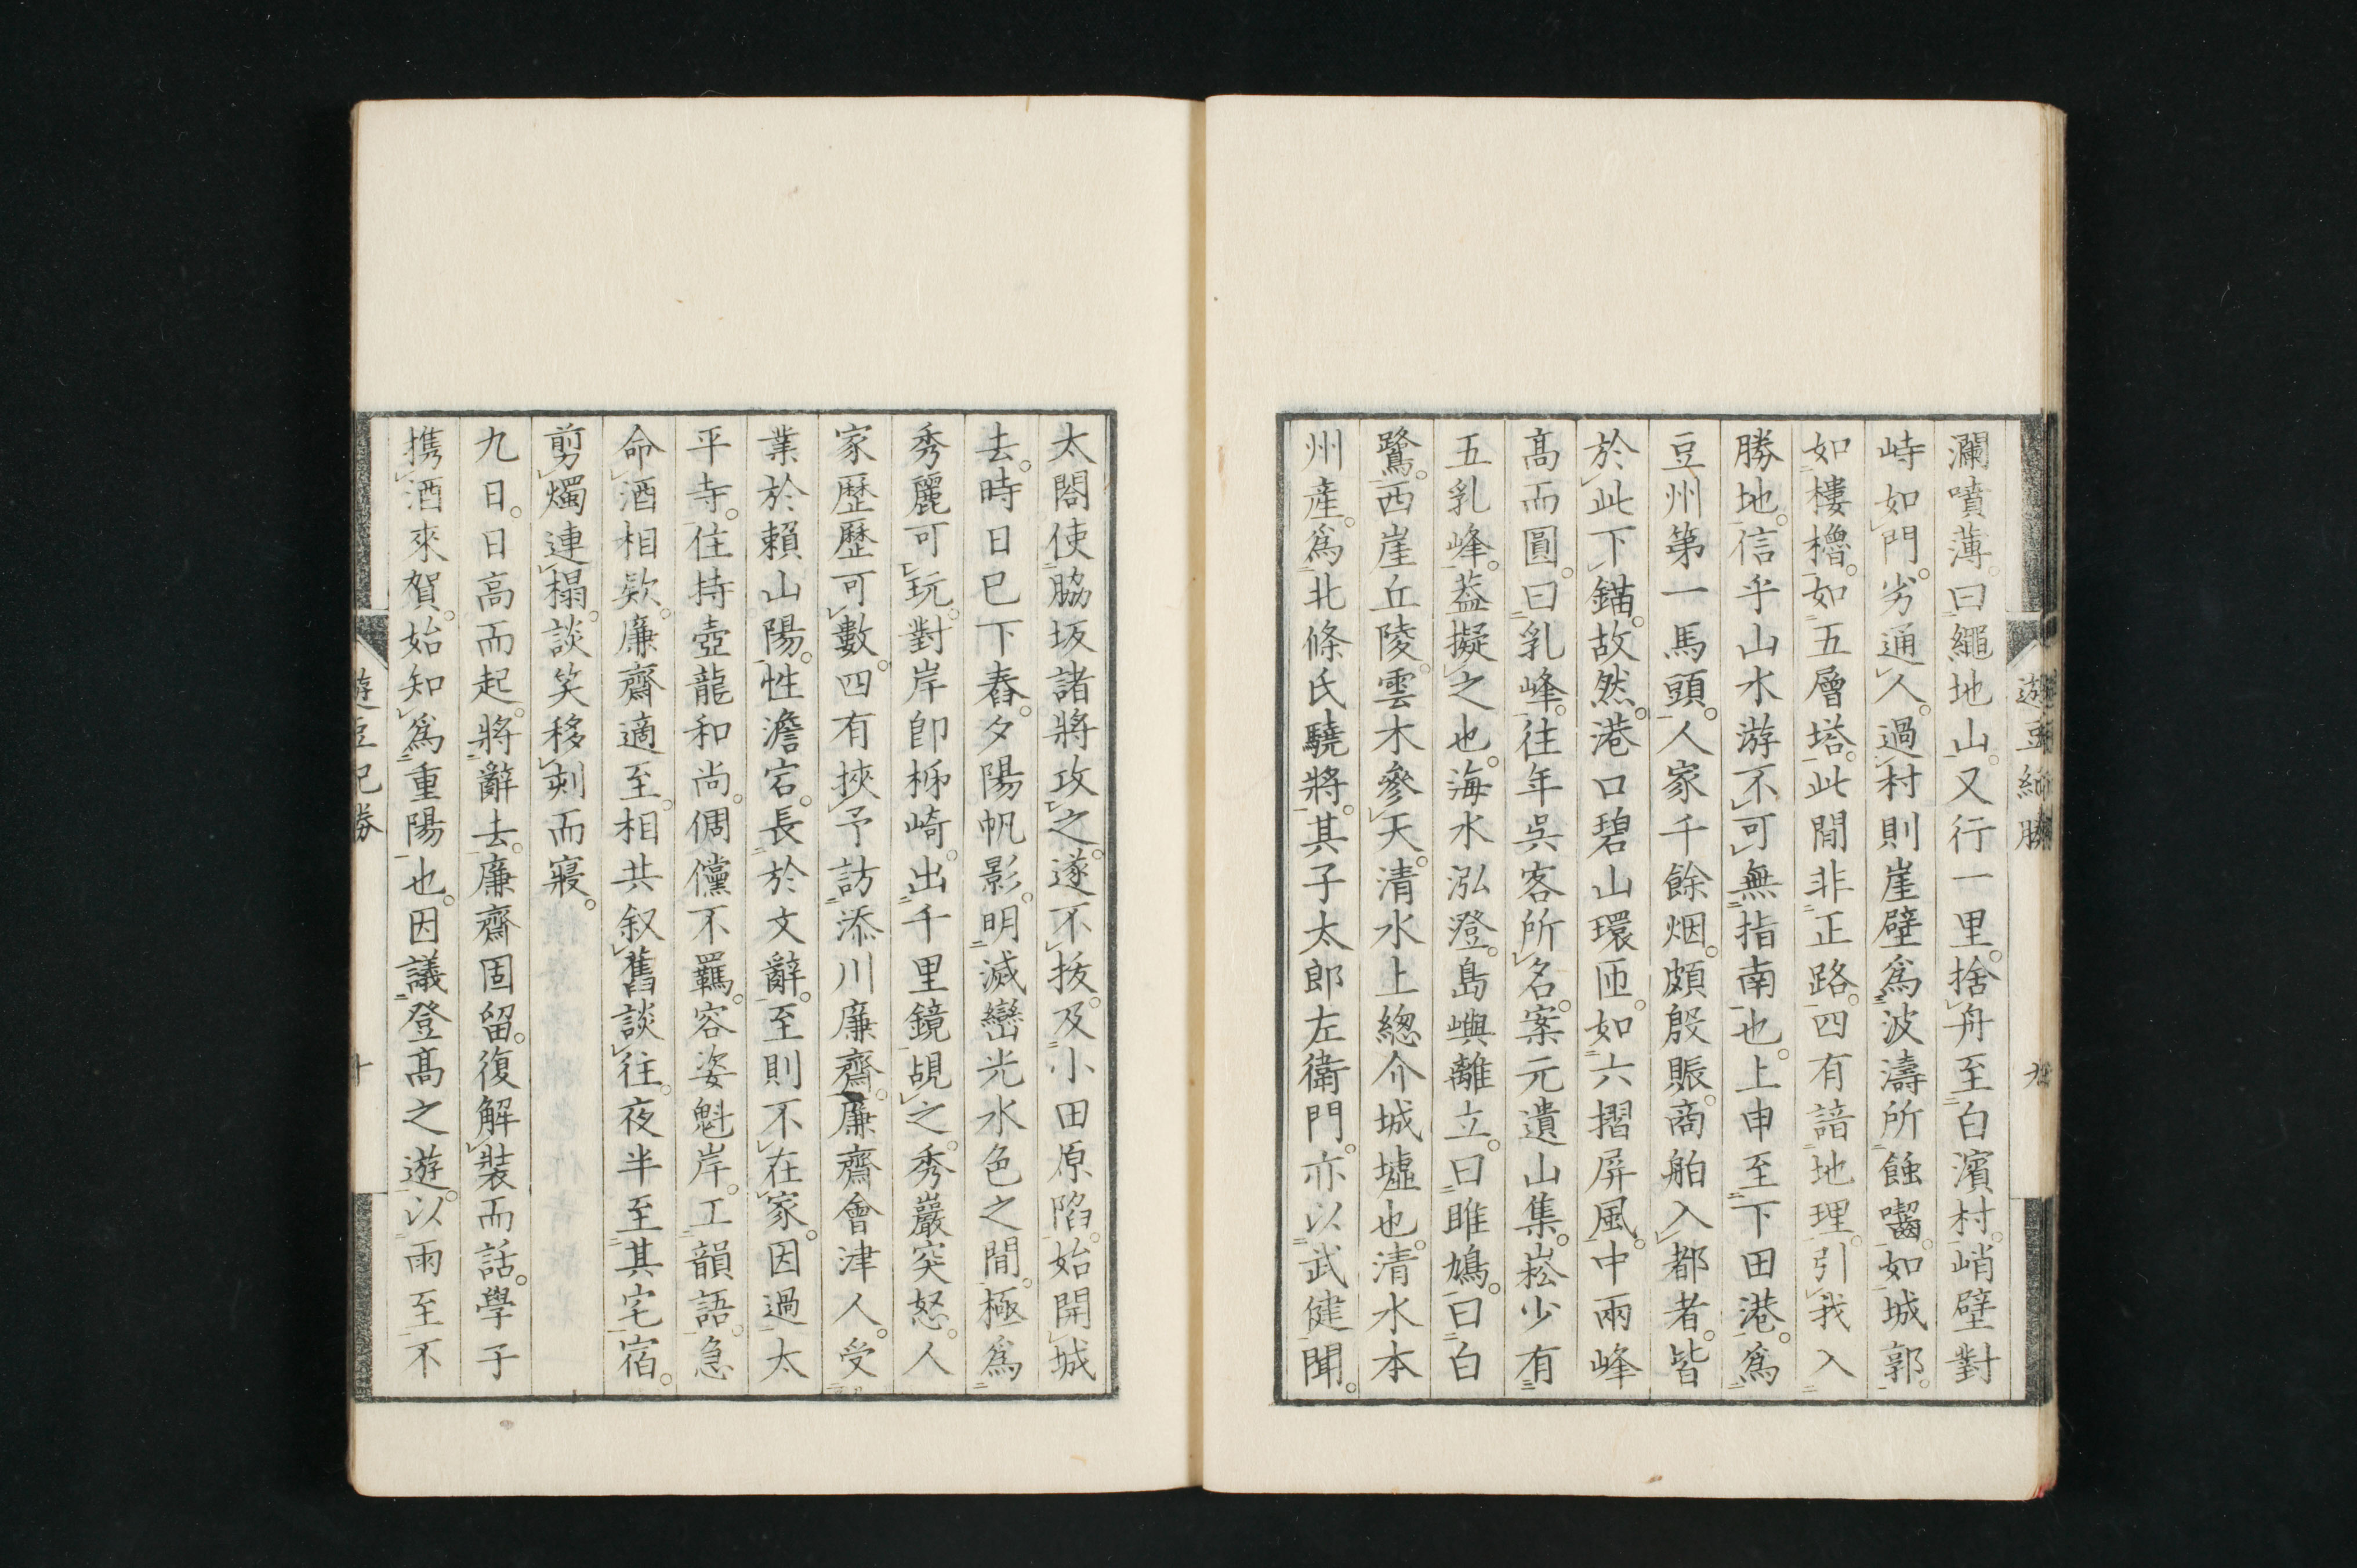 瀾噴薄。曰繩地山。又行一里。捨舟至白濱村。峭壁對
峙如門。劣通人。過村則崖壁爲波濤所蝕囓。如城郭。
如樓櫓。如五層塔。此間非正路。四有諳地理。引我入
勝地。信乎山水游不可無指南也。上申至下田港。爲
豆州第一馬頭。人家千餘烟。頗殷賑。商舶入都者。皆
於此下錨。故然。港口碧山環匝。如六摺屏風。中兩峰
高而圓。曰乳峰。往年呉客所名。案元遺山集。崧少有
五乳峰。葢擬之也。海水泓澄。島嶼離立。曰雎鳩。曰白
鷺。西崖丘陵。雲木參天。清水上緫介城墟也。清水本
州産。爲北條氏驍將。其子太郎左衛門。亦以武健聞。
遊豆紀勝
九
太閤使脇坂諸將攻之。遂不拔。及小田原陷。始開城
去。時日已下舂。夕陽帆影。明滅巒光水色之間。極爲
秀麗可玩。對岸卽柹崎。出千里鏡覘之。秀巖突怒。人
家歷歷可數。四有挾予訪添川廉齋。廉齋會津人。受
業於賴山陽。性澹宕。長於文辭。至則不在家。因過太
平寺。住持壺龍和尚。倜儻不羈。容姿魁岸。工韻語。急
命酒相欵。廉齋適至。相共叙舊談往。夜半至其宅宿。
剪燭連榻。談笑移刺而寢。
九日。日高而起。將辭去。廉齋固留。復解裝而話。學子
携酒來賀。始知爲重陽也。因議登高之遊。以雨至不
遊豆紀勝
十